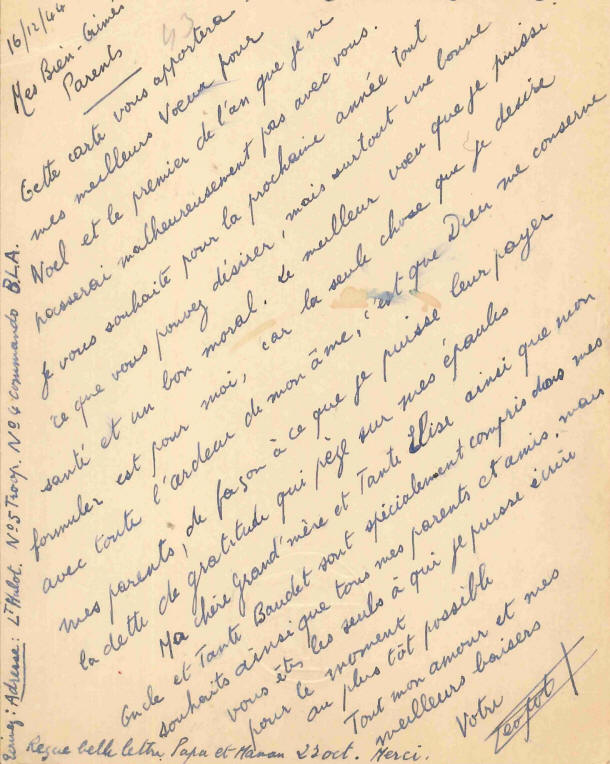 16/12/44
Mes Bien-Aimés
Parents
Cette carte vous apportera
mes meilleurs Voeux pour
Noel et le premier de l'an que je ne
passerai malheureusement pas avec vous.
Je vous souhaite pour la prochaine année tout
ce que vous pouvez désirer, mais surtout une bonne
santé et un bon moral. Le meilleur vœu que je puisse
formuler est pour moi, car la seule chose que je désire
avec toute l'ardeur de mon âme, c'est que Dieu me conserve
mes parents, de façon à ce que je puisse leur payer
la dette de gratitude qui pèse sur mes épaules
Ma chère Grand'mère et Tante Elise ainsi que mon
Oncle et Tante Baudet sont spécialement compris dans mes
souhaits ainsi que tous mes parents et amis, mais
vous êtes les seuls à qui je puisse écrire
pour le moment
au plus tôt possible
Tout mon amour et mes
meilleurs baisers
Votre
Recue belle lettre Papa et Maman 22 oct. Merci.
Adresse: Lt Hulot. No 5 Troop. No 4 Commando B.L.A.
43